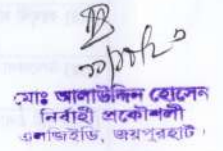 মোঃ আলাউদ্দিন হোসেন
নির্বাহী প্রকৌশলী
এলজিইডি, জয়পুরহাট।